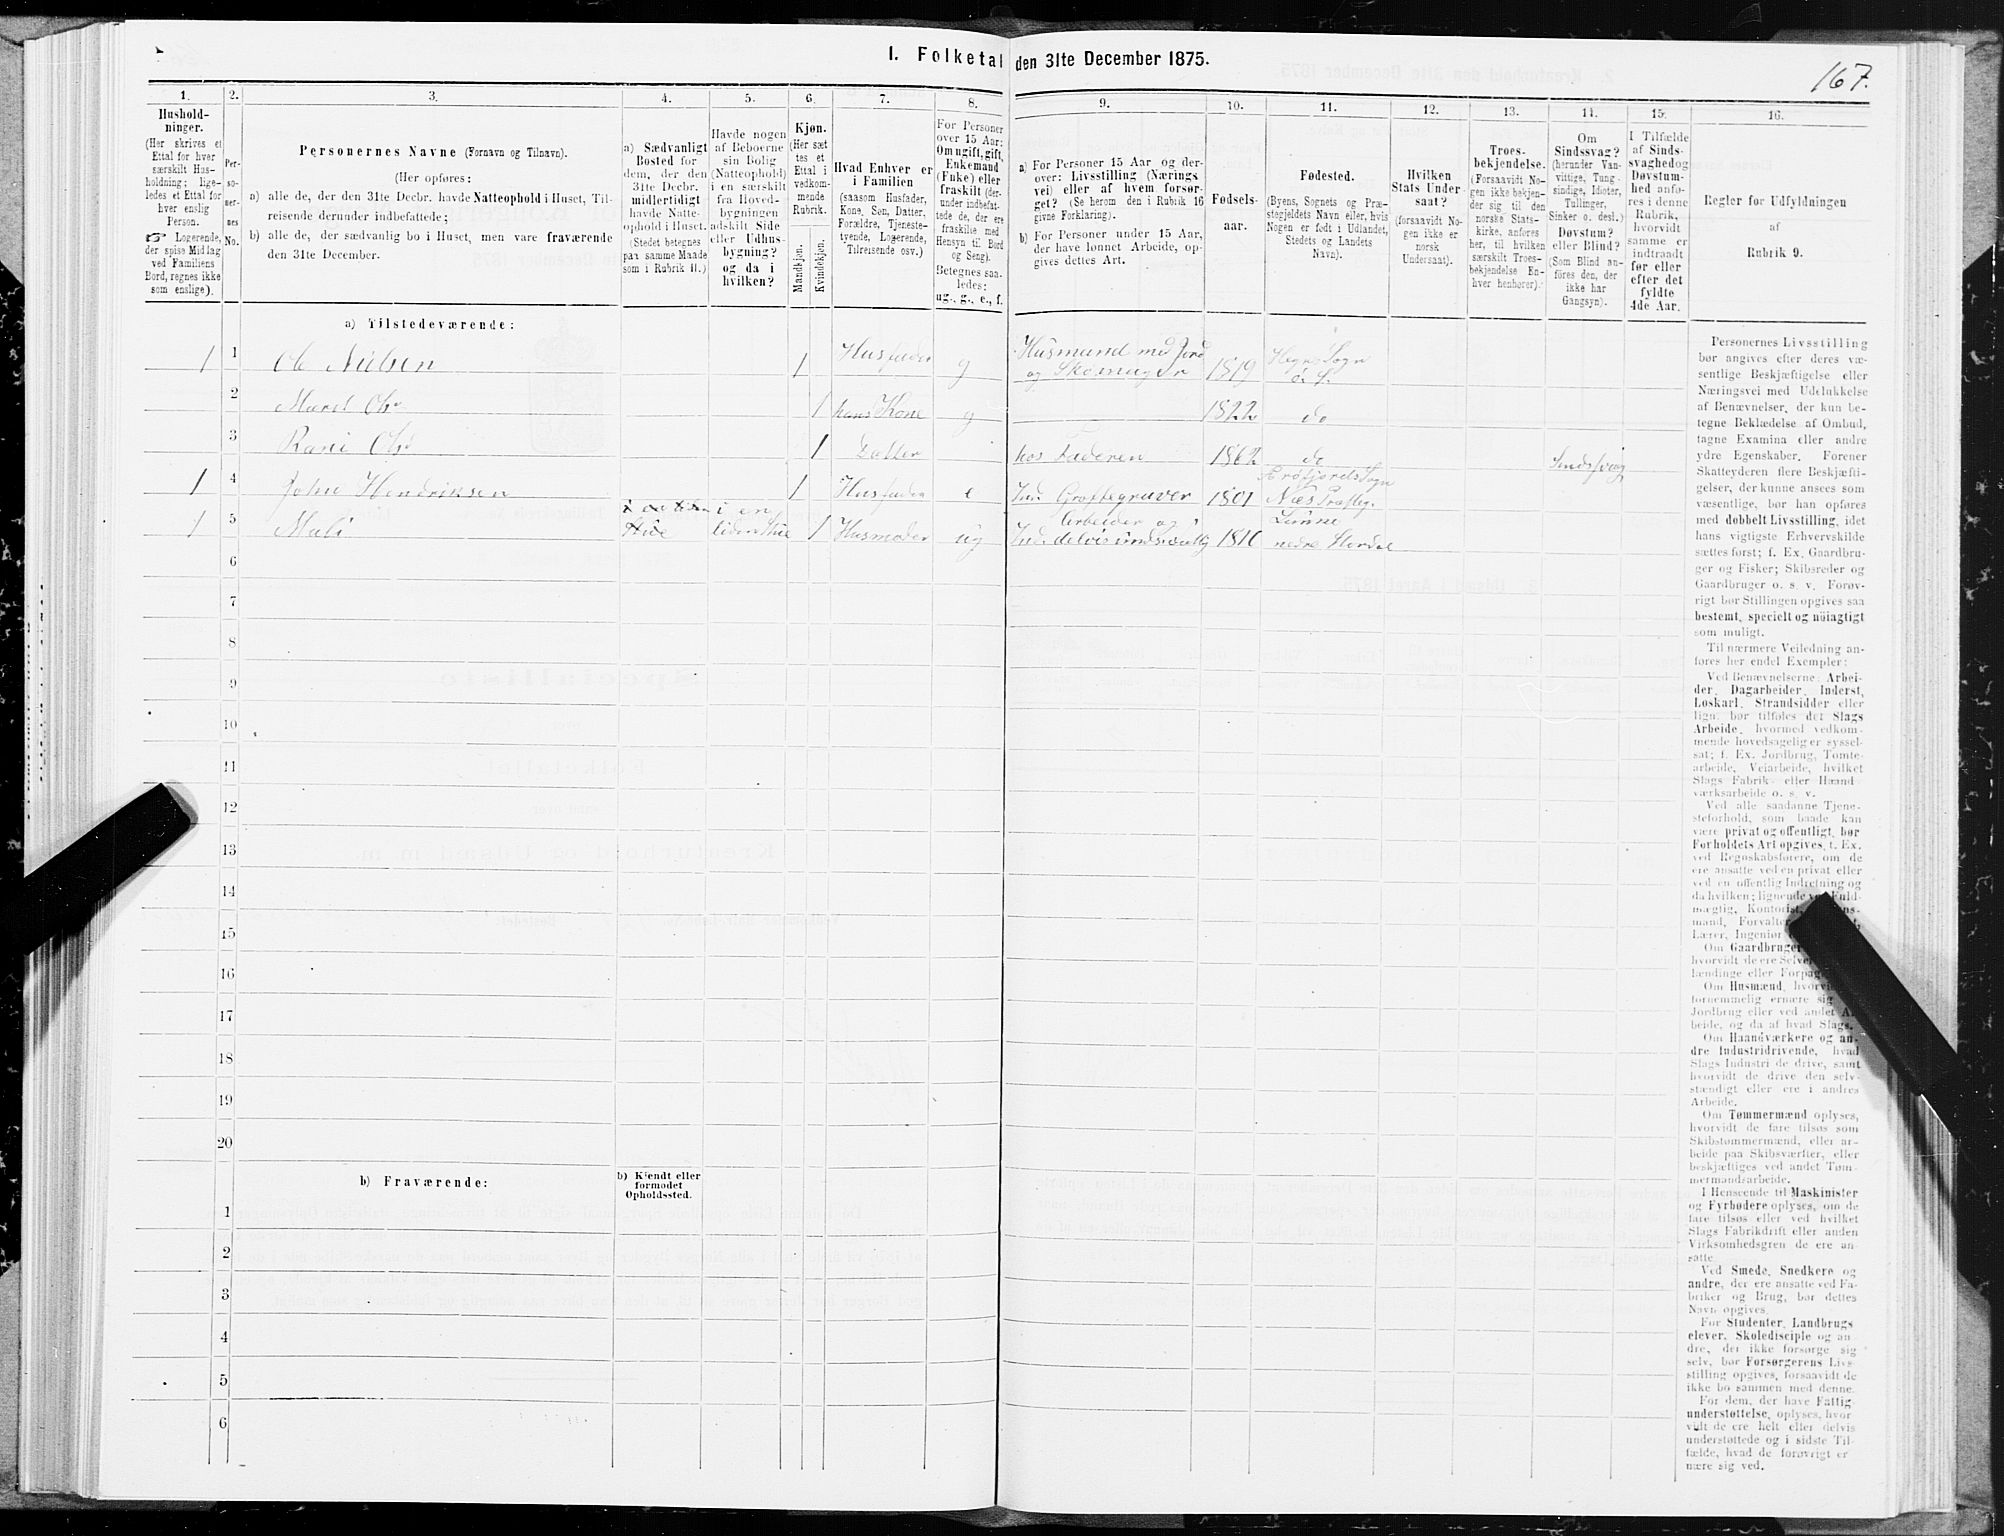 I. Folketal den 31te December 1875.
167.
1. 2. 3. 4. 5. 6. 7. 8. 9. 10. 11. 12. 13. 14. 15. 16.
Hushold-
ninger.
(Her skrives et
Ettal for hver
særskilt Hus-
holdning; lige-
ledes et Ettal for
hver enslig
Person.
☞ Logerende,
der spise Middag
ved Familiens
Bord, regnes ikke
som enslige).
Per-
so-
ner-
nes
No.
Personernes Navne (Fornavn og Tilnavn).
(Her opføres:
a) alle de, der den 31te Decbr. havde Natteophold i Huset, Til-
reisende derunder indbefattede;
b) alle de, der sædvanlig bo i Huset, men vare fraværende
den 31te December.
a) Sædvanligt
Bosted for
dem, der den
31te Decbr.
midlertidigt
havde Natte-
ophold i Huset.
(Stedet betegnes
paa samme Maade
som i Rubrik 11.)
Havde nogen
af Beboerne
sin Bolig
(Natteophold)
i en særskilt
fra Hoved-
bygningen
adskilt Side
eller Udhus-
bygning?
og da i
hvilken?
Kjøn.
(Her sæt
tes et
Ettal i
vedkom-
mende
Rubrik.
Mandkjøn.
Kvindekjøn.
Hvad Enhver er
i Familien
(saasom Husfader,
Kone, Søn, Datter,
Forældre, Tjeneste-
tyende, Logerende,
Tilreisende osv.)
For Personer
over 15 Aar:
Om ugift, gift,
Enkemand
(Enke) eller
fraskilt (der-
under indbefat-
tede de, der ere
fraskilte med
Hensyn til Bord
og Seng).
Betegnes saa-
ledes:
ug., g., e., f.
a) For Personer 15 Aar og der-
over: Livsstilling (Nærings
vei) eller af hvem forsør-
get? (Se herom den i Rubrik 16
givne Forklaring).
b) For Personer under 15 Aar,
der have lønnet Arbeide, op-
gives dettes Art.
Fødsels-
aar.
Fødested.
(Byens, Sognets og Præ-
stegjeldets Navn eller, hvis
Nogen er født i Udlandet,
Stedets og Landets
Navn).
Hvilken
Stats Under-
saat?
(forsaavidt No-
gen ikke er
norsk
Undersaat).
Troes-
bekjendelse.
(Forsaavidt No-
gen ikke bekjen-
der sig til den
norske Stats-
kirke, anføres
her, til hvilken
særskilt Troes-
bekjendelse En-
hver henhører).
Om
Sindssvag?
(herunder Van-
vittige, Tung-
sindige, Idioter,
Tullinger,
Sinker o. desl.)
Døvstum?
eller Blind?
(Som Blind an-
føres den, der
ikke har
Gangsyn).
I Tilfælde
af Sinds-
svaghed og
Døvstum-
hed anfø-
res i denne
Rubrik,
hvorvidt
samme er
indtraadt
før eller
efter det
fyldte
4de Aar.
Regler for Udfyldningen
af
Rubrik 9.
a) Tilstedeværende:
1 1 Ole Nielsen 1 Husfader g Husmand med Jord og Skomager 1819 Hegre Sogn
2 Marit Olsd 1 hans Kone g 1822 do
3 Olsd 1 Datter hos Faderen 1862 do Sindssvag
1 4 John Hendriksen 1 Husfader e Ind. Grøftegraver 1801 Næs Præsteg.
1 5 Mali i en liden Stue 1 Husmoder ug Ind. Arbeider og delvis 1810
6
7
8
9
10
11
12
13
14
15
16
17
18
19
20
b) Fraværende:
b) Kjendt eller
formodet
Opholdssted.
1
2
3
4
5
6
Personernes Livsstilling
bør angives efter deres væ-
sentlige Beskjæftigelse eller
Næringsvei med Udelukkelse
af Benævnelser, der kun be-
tegne Beklædelse af Ombud,
tagne Examina eller andre
ydre Egenskaber. Forener
Skatteyderen flere Beskjæfti-
gelser, der kunne ansees som
væsentlige, bør han opføres
med dobbelt Livsstilling, idet
hans vigtigste Erhvervskilde
sættes først; f. Ex. Gaardbru-
ger og Fisker; Skibsreder og
Gaardbruger o. s. v. Forøv-
rigt bør Stillingen opgives saa
bestemt, specielt og nøiagtigt
som muligt.
Til nærmere Veiledning an-
føres her endel Exempler:
Ved Benævnelserne: Arbei-
der, Dagarbeider, Inderst,
Løskarl, Strandsidder eller
lign. bør tilføies det Slags
Arbeide, hvormed vedkom-
mende hovedsagelig er syssel-
sat; f. Ex. Jordbrug, Tomte-
arbeide, Veiarbeide, hvilket
Slags Fabrik- eller Haand-
værksarbeide o. s. v.
Ved alle saadanne Tjene-
steforhold, som baade kan
være privat og offentligt, bør
Forholdets Art opgives, f. Ex.
ved Regnskabsførere, om de
ere ansatte ved en privat eller
ved en offentlig Indretning og
da hvilken; lignende ved Fuld-
mægtig, Kontorist,
mand, Forvalter,
Lærer, Ingeniør
Om Gaardbruger
hvorvidt de ere Selv
lændinge eller Forpag
Om Husmænd,
fornemmelig ernære sig
Jordbrug eller ved andet Ar
beide, og da af hvad Slags.
Om Haandværkere og an-
dre Industridrivende, hvad
Slags Industri de drive, samt
hvorvidt de drive den selv-
stændigt eller ere i andres
Arbeide.
Om Tømmermænd oplyses,
hvorvidt de fare tilsøs som
Skibstømmermænd, eller ar-
beide paa Skibsværfter, eller
beskjæftiges ved andet Tøm-
mermandsarbeide.
I Henseende til Maskinister
og Fyrbødere oplyses, om de
fare tilsøs eller ved hvilket
Slags Fabrikdrift eller anden
Virksomhedsgren de ere an-
satte.
Ved Smede, Snedkere og
andre, der ere ansatte ved Fa-
briker og Brug, bør dettes
Navn opgives.
For Studenter, Landbrugs
elever, Skoledisciple og an-
dre, der ikke forsørge sig
selv, bør Forsørgerens Livs-
stilling opgives, forsaavidt de
ikke bo sammen med denne.
For dem, der have Fattig
understøttelse, oplyses, hvor
vidt de ere helt eller delvis
understøttede og i sidste Til-
fælde, hvad de forøvrigt er
nære sig ved.